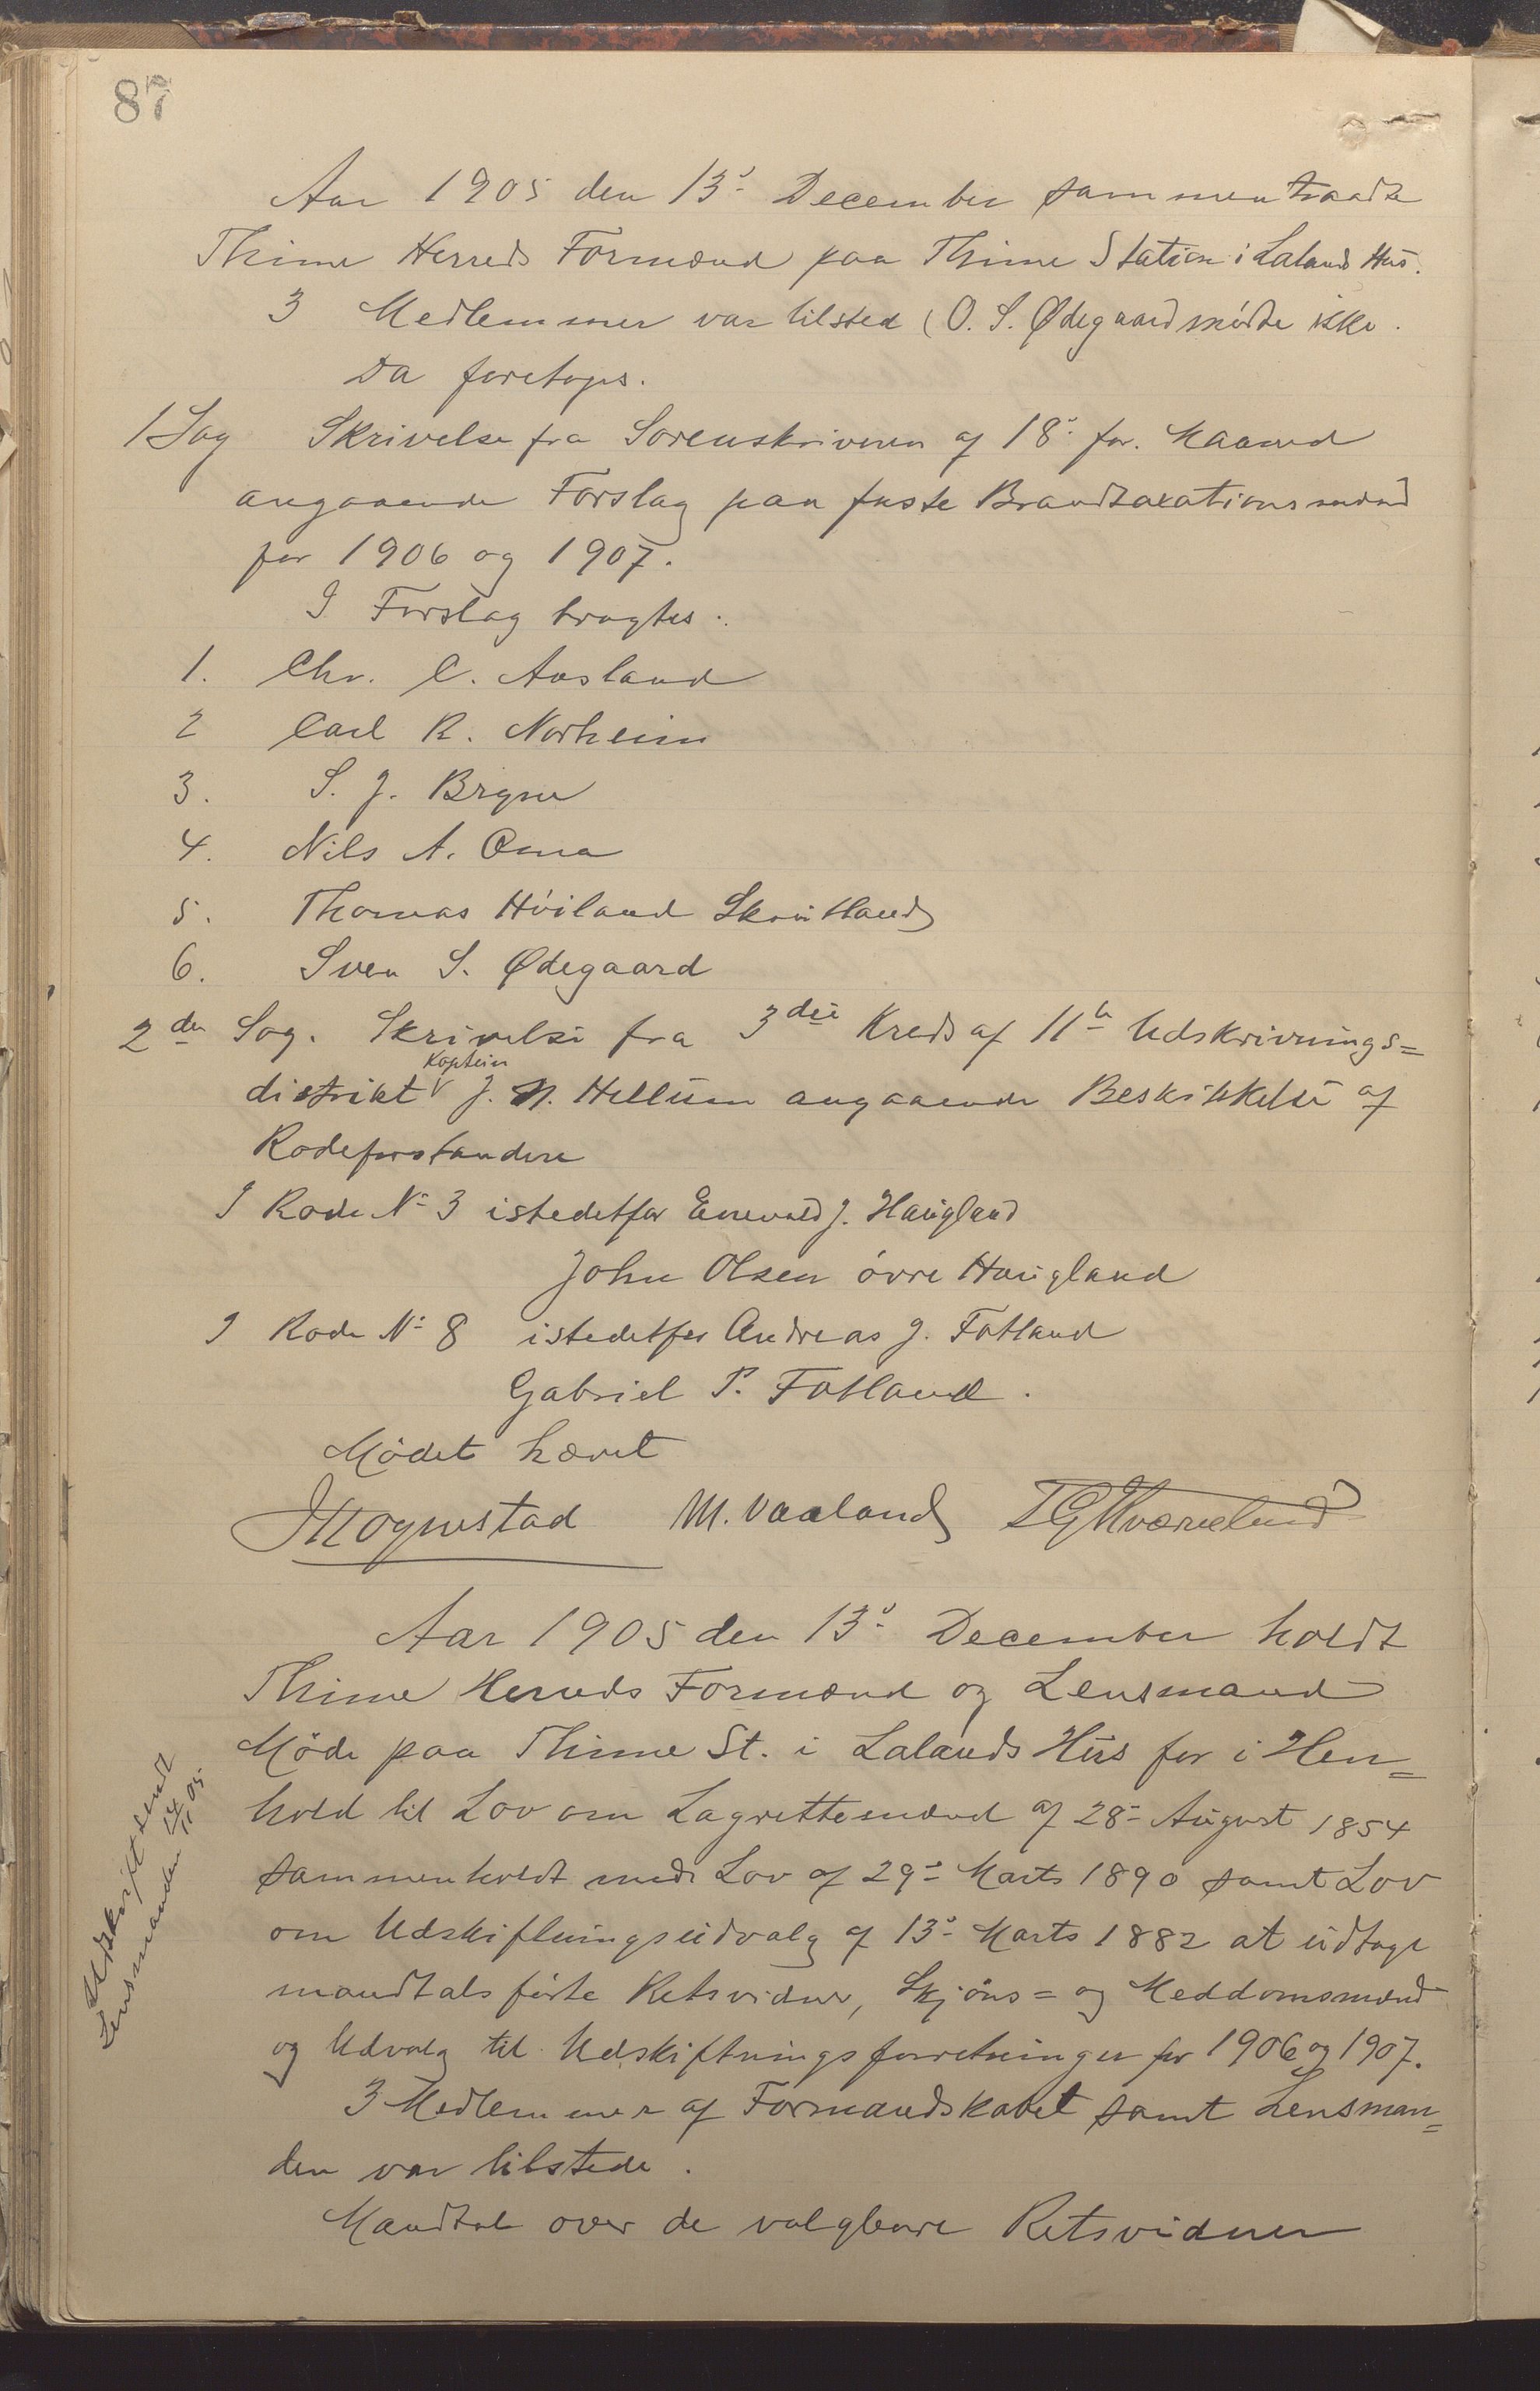 87
Aar 1905 den 13de December sammentraadte
Thime Herreds Formænd paa Thime Station i Lalands Hus.
3 Medlemmer var tilsted (O. S. Ødegaard mødte ikke.
Da foretoges.
1 Sag Skrivelse fra Sorenskriveren af 18de for. Maaned
angaaende Forslag paa faste Brandtaxationsmænd
for 1906 og 1907.
I Forslag bragtes.
1. Chr. C. Aasland
2 Carl R. Norheim
3. S. J. Bryne
4. Nils A. Oma
5. Thomas Höiland Skrütland
6. Sven S. Ødegaard
2den Sag. Skrivelse fra 3die Kreds af 11te Udskrivnings=
Kaptein
distrikt J. N. Hellum angaaende Beskikkelse af
Rodeforstandere
I Rode No 3 istedetfor Enevald J. Haugland
John Olsen övre Haugland
I Rode No 8 istedetfor Andreas J. Fotland
Gabriel P. Fotland.
Mödet hævet
J Mognestad M. Vaaland T G Kværneland
Aar 1905 den 13de December holdt
Thime Herreds Formænd og Lensmand
Möde paa Thime St. i Lalands Hus for i Hen=
hold til Lov om Lagrettemænd af 28de August 1854
sammenholdt med Lov af 29de Marts 1890 samt Lov
om Udskiftningsudvalg af 13de Marts 1882 at udtage
mandtalsförte Retsvidner, Skjöns= og Meddomsmænd
og Udvalg til Udskiftningsforretninger for 1906 og 1907.
3 Medlemmer af Formandskabet samt Lensman=
den var tilstede.
Mandtal over de valgbare Retsvidner
Udskrift sendt
Lensmanden 14/11 05